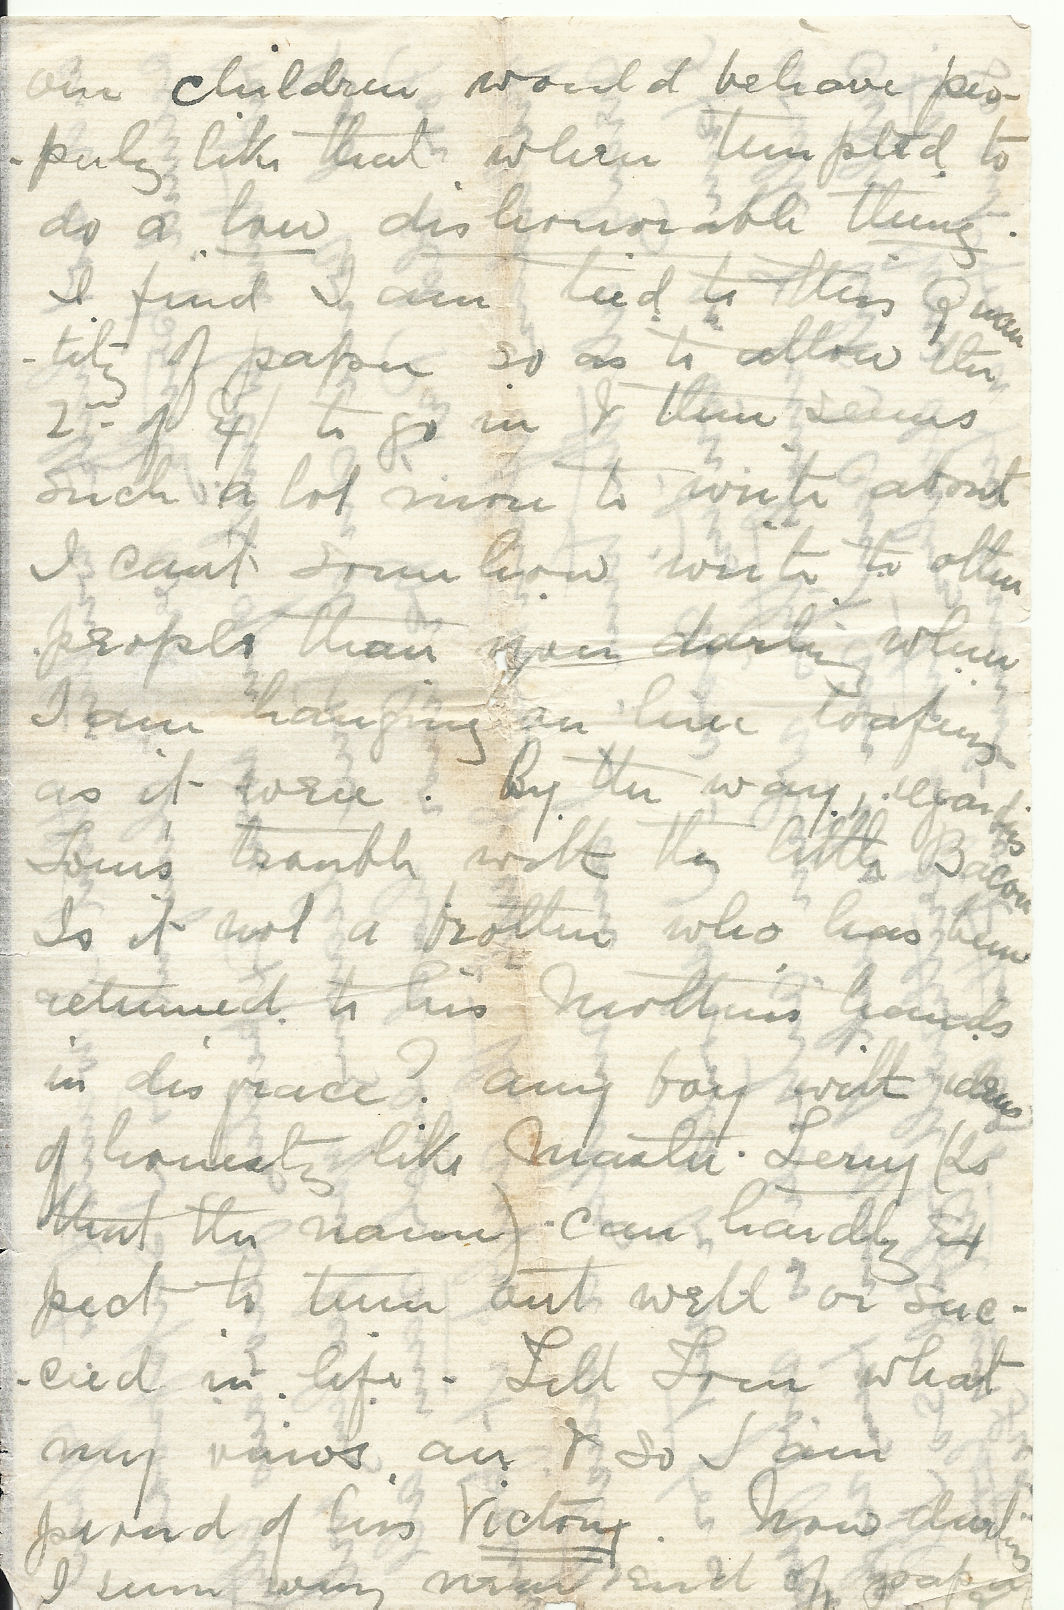 our children would behave pro-
-perly like that when tempted to
do a low dishonorable thing.
I find I am tied to this Quan
-tity of paper so as to allow the
2nd of 4 to go in & there seems
such a lot more to write about
I can't somehow write to other
people than you darling when
I am hanging on here loafing
as it were. By the way, regarding
Lou's trouble with the little Bacon
Is it not a brother who has been
returned to his Mother's hands
in disgrace? any boy with ideas
of honesty like Master Leroy (is
that the name) can hardly ex
pect to turn out well or suc-
-ceed in life - Tell Lou what
my views are & so I am
proud of his Victory. Now darling
I seem very near end of paper